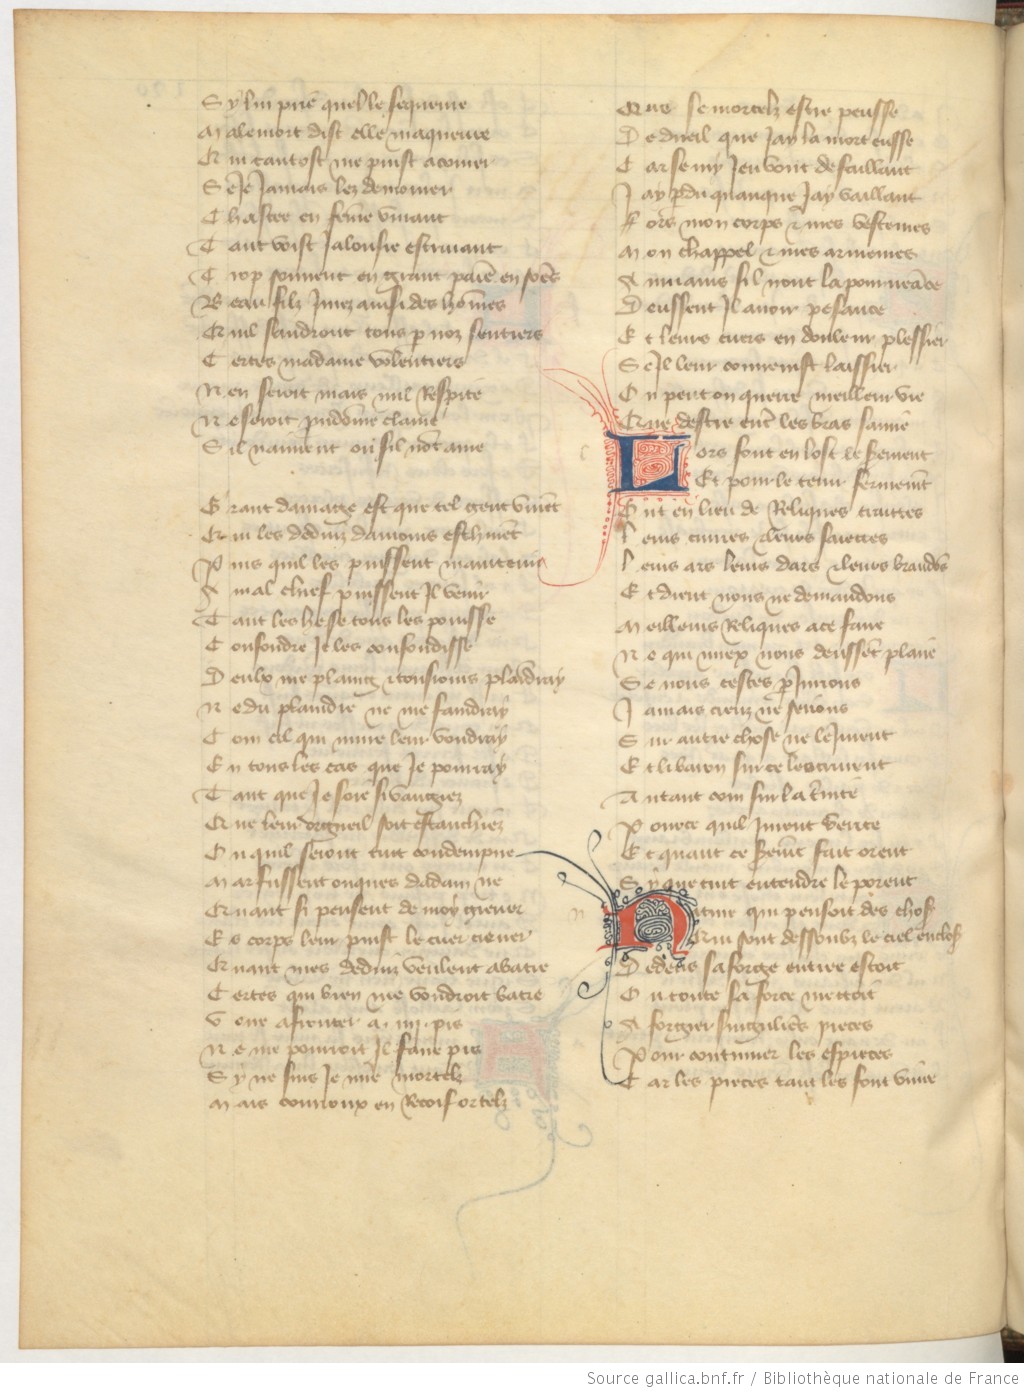 Sy lui prie quelle sequeure
Male mort dist elle maqueure
Qui tantost me puist acorer
Se Je Jamais lez demorer
Chastee en feme vivant
Tant voist Jalousie estrivant
Trop souvent en grant paine en somes
Beau filz Jurez aussi des homes
Quil saudront tous p noz sentiers
Certes ma dame voulentiers
Nen seroit mais nul Respite
Ne seroit preudome clame
Sil naiment ou sil nont ame
Grant damage est que tel gent vivent
Qui les deduiz damours eschivent
Puis quil les puissent maintenir
A mal chief puissent Jl venir
Tant les he se tous les pouisse
Confondre Je les confondisse
Deulx me plaing et tousiours plaindray
Ne du plaindre ne me faindray
Com cil qui nuire leur voudray
En tous les cas que Je pourray
Tant que Je soie si vangiez
Que leur orgueil soit estanchiez
Ou quil seront tuit condempne
Mar fussent onques dadam ne
Quant si pensent de moy grever
Es corps leur puist le cuer crever
Quant mes deduiz veulent abatre
Certes qui bien me vondroit batre
Voire afronter a .iiii. pis
Ne me pourroit Jl faire pis
Sy ne suis Je mie mortelz
Mais courroux en Recoif or telz
Que se mortelz estre peusse
De dueil que Jay la mort eusse
Car se my Jeu vont defaillant
Jay pdu quanque Jay vaillant
Fors mon corps et mes vestemes
Mon chappel et mes armemes
Au mains sil nont la
Deussent Jl avoir pesance
Et leurs cuers en douleur plessier
Se Jl leur convenist laissier
On peut on querre meilleur vie
Que destre entre les bras samie
Lors font en lost le serment
Et pour le tenir ferment
Ont en lieu de Reliques traittes
Leurs cuivres et leurs saiettes
Leurs ars leurs dars et leurs brandons
Et dient nous ne demandons
Meilleurs Reliques a ce faire
Ne qui miex nous deussent plaire
Se nous cestes pJurions
Jamais creuz ne serions
Sur autre chose ne le Jurent
Et li baron sur ce les crurent
Autant com sur la trinite
Pour ce quil Jurent verite
Et quant ce serment fait orent
Sy que tuit entendre le porent
Nature qui pensoit des choses
Qui sont dessoubz le ciel encloses
Dedens sa forge entree estoit
Ou toute sa force mettoit
A forgier singulieres pieces
Pour continuer les espieces
Car les pieces tant les font vivre
Source gallica.bnf.fr / Bibliothèque nationale de France